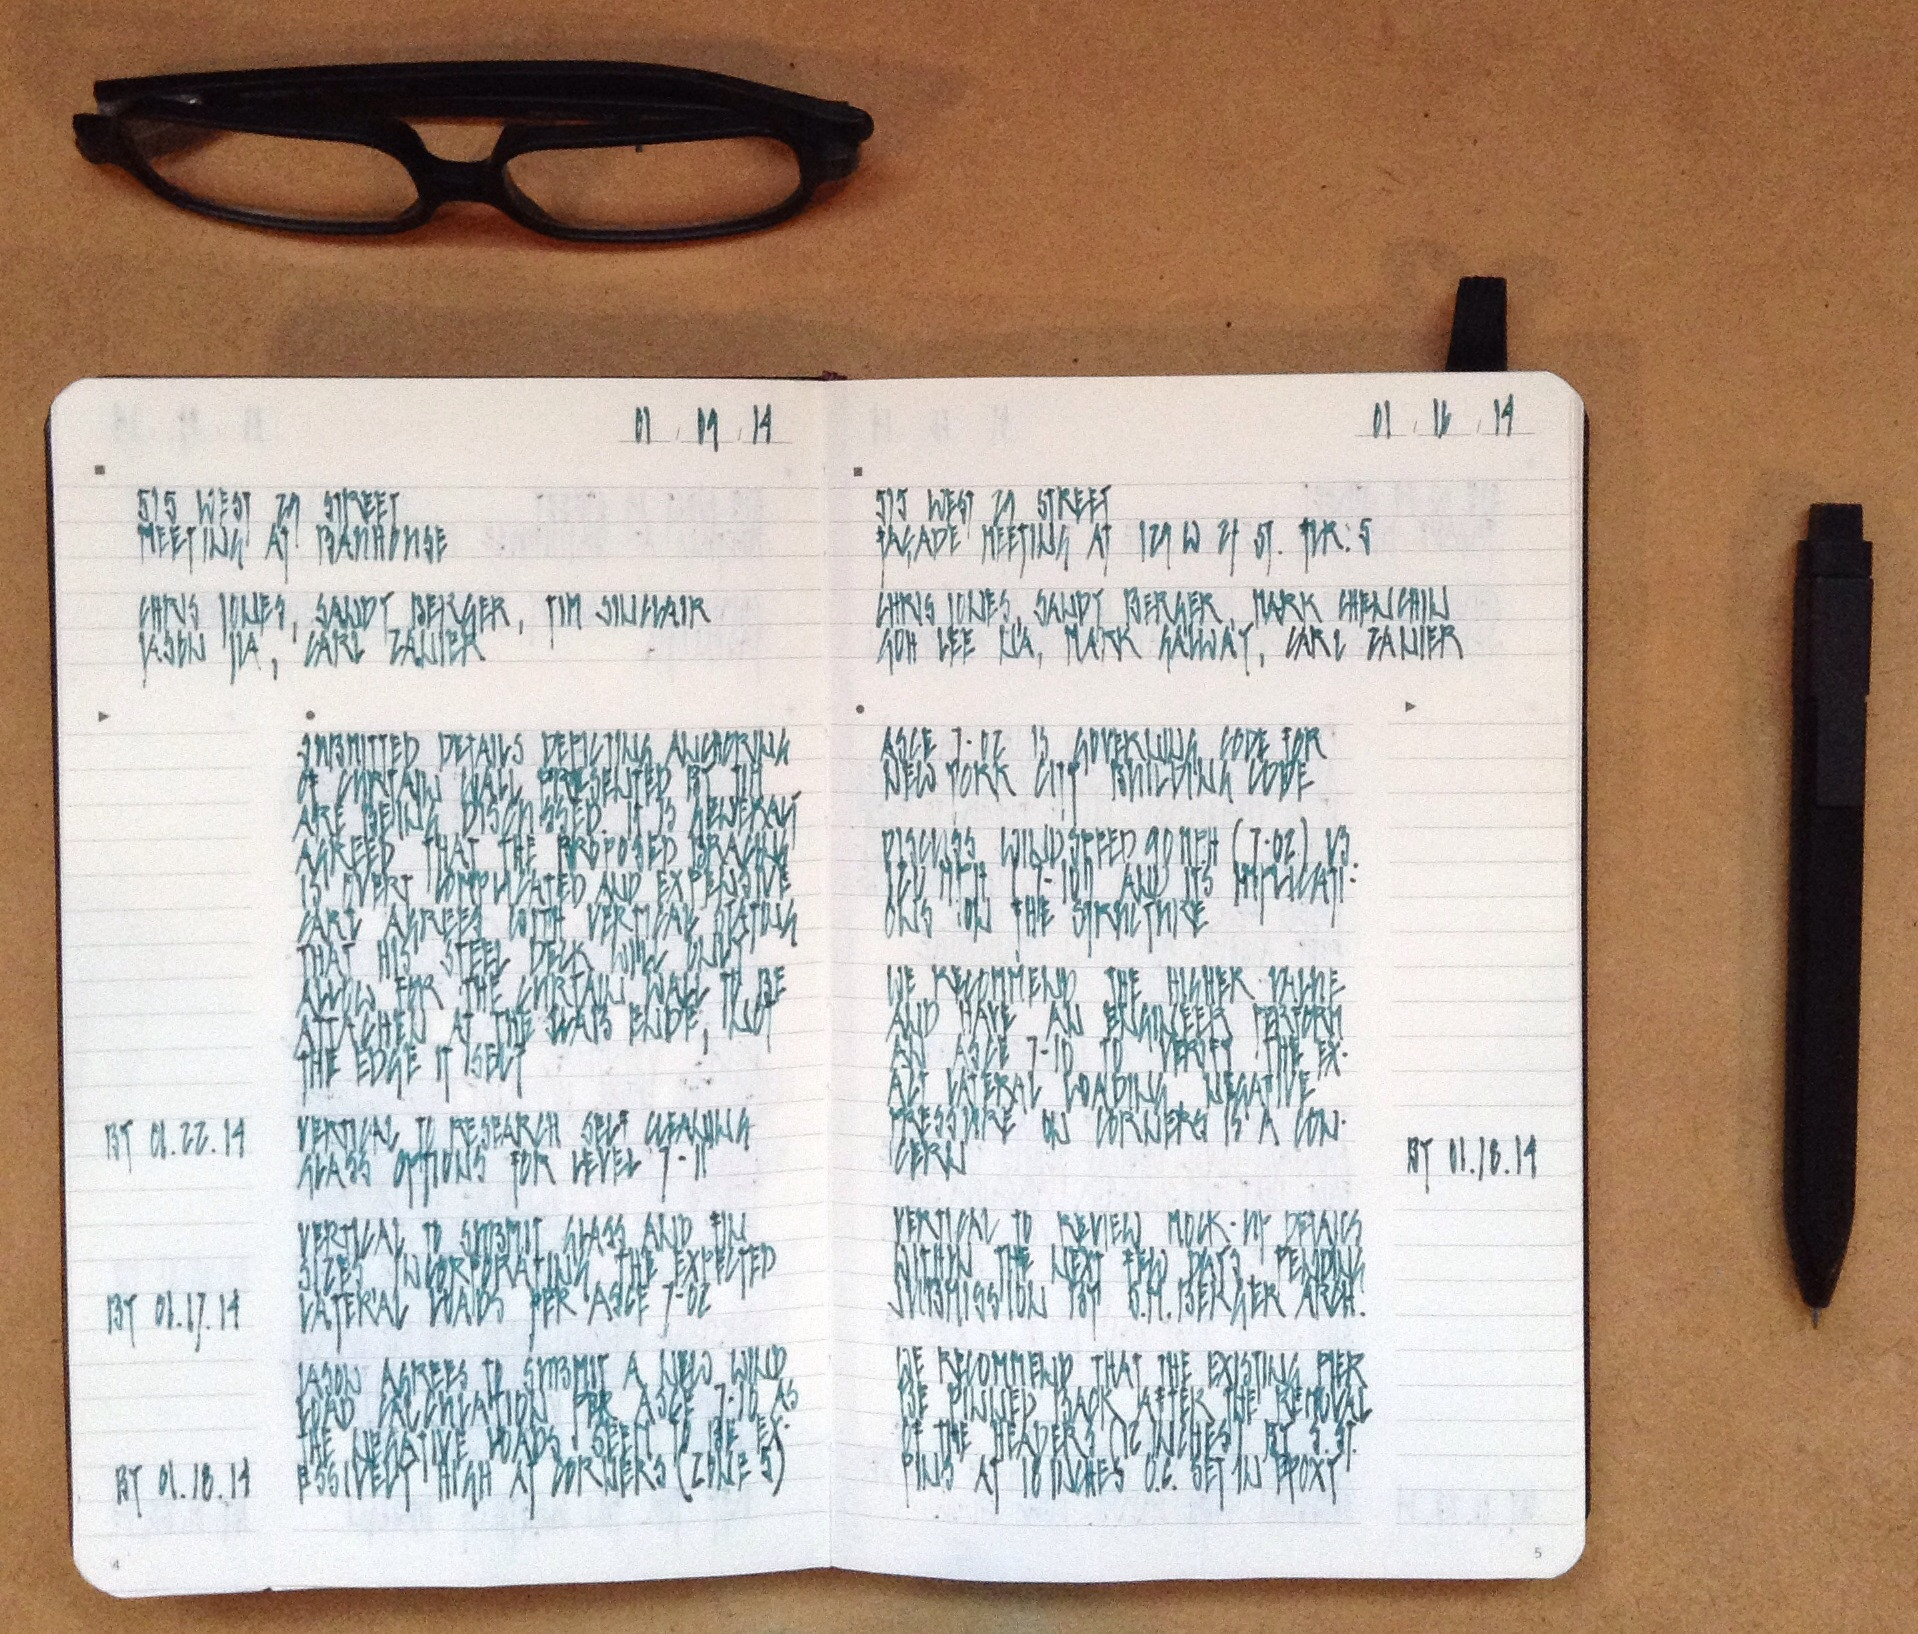 01 . 09 . 14
515 WEST 29 STREET
MEETING AT BAUHOUSE
CHRIS JONES, SANDY BERGER, TIM SINCLAIR
JASON JIA, CARL ZANIER
SUBMITTED DETAILS DEPICTING ANCHORING
OF CURTAIN WALL PRESENTED BY TIM
ARE BEING DISCUSSED. IT IS GENERALY
AGREED THAT THE PROPOSED BRACING
IS OVERY COMPLICATED AND EXPENSIVE
CARL AGREES WITH VERTICAL STATING
THAT HIS STEEL DECK WILL ONLY
ALLOW FOR THE CURTAIN WALL TO BE
ATTACHED AT THE SLABS , NOT
THE EDGE IT ISELF
BY 01.22.14
VERTICAL TO RESEARCH SELF CLEANING
GLASS OPTIONS FOR LEVEL 7-11
VERTICAL TO SUBMIT GLASS AND FIN
SIZES INCORPORATING THE EXPECTED
BY 01.17.14
LATERAL LOADS PER ASCE 7-02
JASON AGREES TO SUBMIT A NEW WIND
LOAD CALCULATION PER ASCE 7-10 AS
THE NEGATIVE LOADS SEEM TO BE EX-
BY 01.18.14
ESSIVELY HIGH AT CORNERS (ZONE 5)
4
01 . 16 . 14
515 WEST 29 STREET
FACADE MEETING AT 129 W 27 ST. FLR: 5
CHRIS JONES, SANDY BERGER, MARK CHENCHIN
GOH LEE NA, MARK GALWAY, CARL ZANIER
ASCE 7-02 IS GOVERNING CODE FOR
NEW YORK CITY BUILDING CODE
DISCUSS WINDSPEED 90 MPH (7-02) VS.
120 MPH (7-10) AND ITS IMPLICATI-
ONS ON THE STRUCTURE
WE RECOMMEND THE HIGHER VALUE
AND HAVE AN ENGINEER PERFORM
AN ASCE 7-10 TO VERIFY THE EX-
ACT LATERAL LOADING NEGATIVE
PRESSURE ON CORNERS IS A CON-
CERN
BY 01.18.14
VERTICAL TO REVIEW MOCK-UP DETAILS
WITHIN THE NEXT FEW DAYS PENDING
SUBMISSION BY S.M.BERGER ARCH.
WE RECOMMEND THAT THE EXISTING PIER
BE PINNED BACK AFTER THE REMOVAL
OF THE HEADERS (12 INCHES) BY S.ST.
PINS AT 18 INCHES O.C. SET IN EPOXY
5